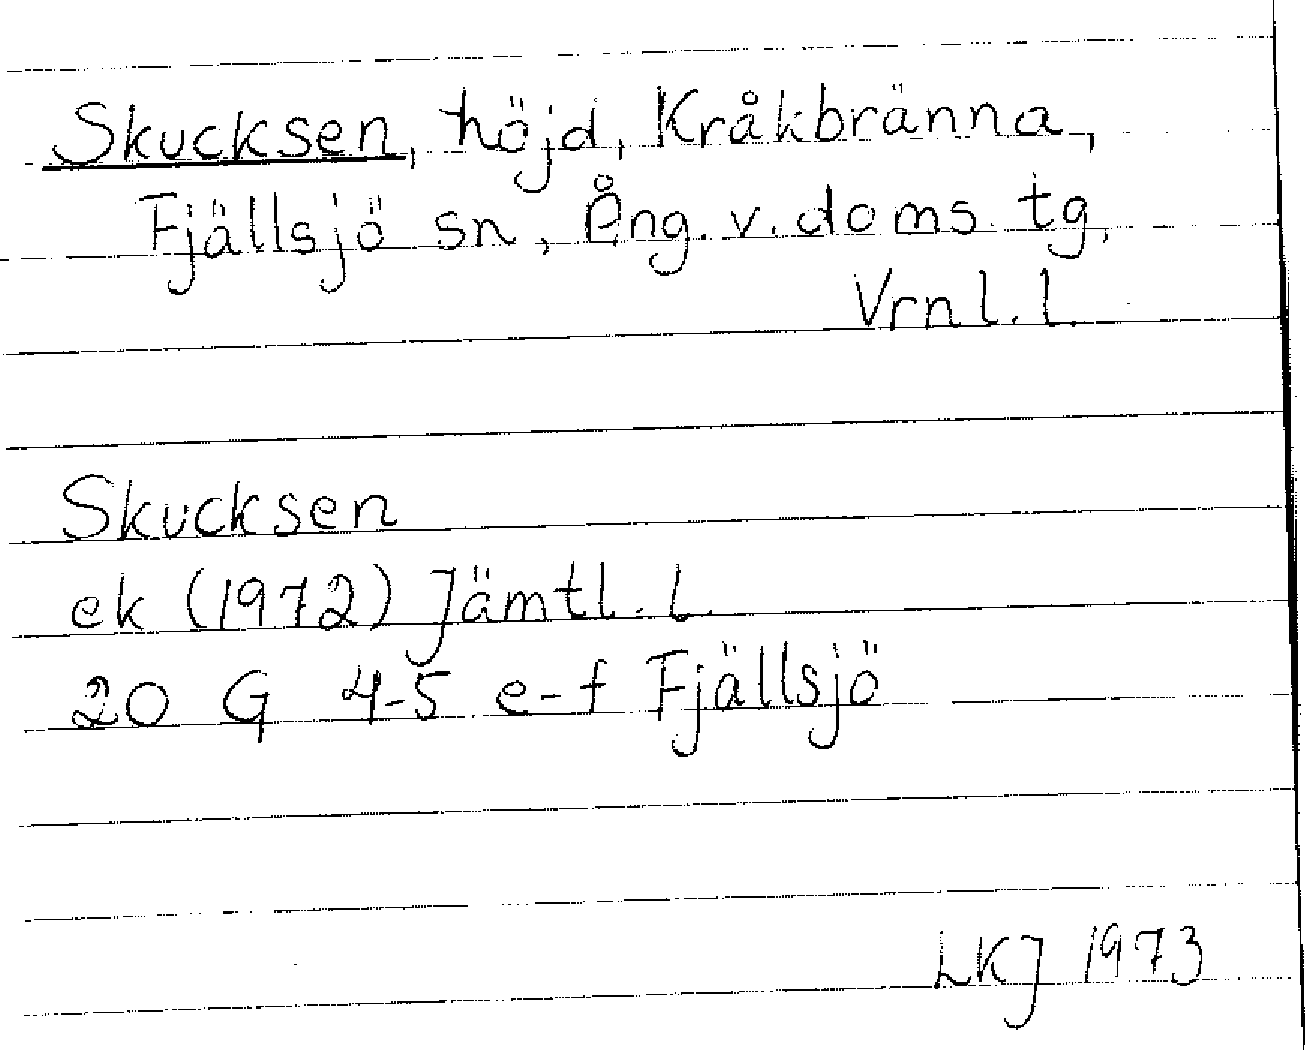 Skucksen, höjd, Kråkbränna,
Fjällsjö sn, Ång. v. doms. tg.
Vrnl. l.
Skucksen
ek (1972) Jämtl. l.
20 G 4-5 e-f Fjällsjö
LKJ 1973